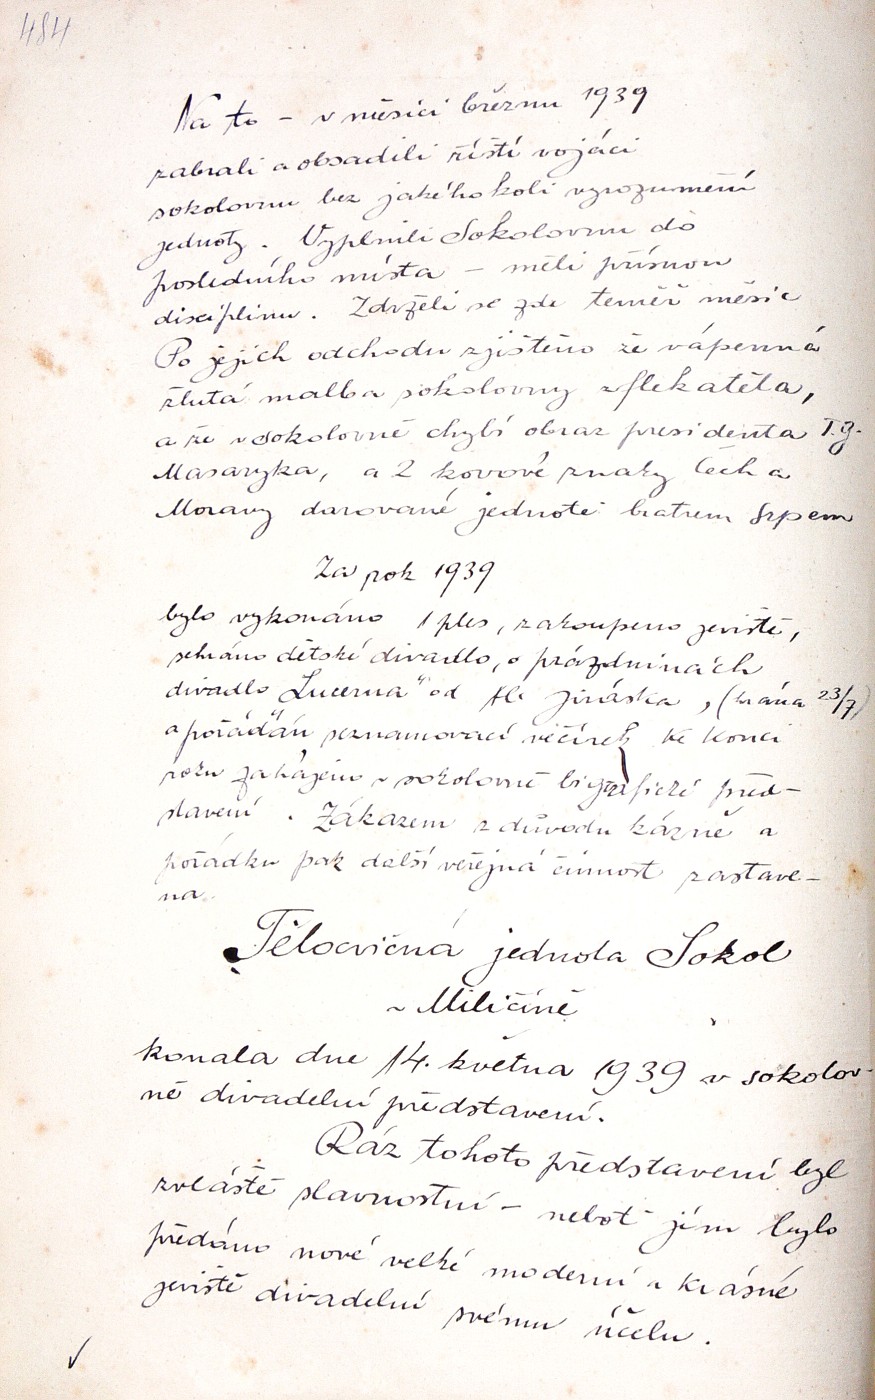 484
Na to – v měsíci březnu 1939
zabrali a obsadili říští vojáci
sokolovnu bez jakéhokoli vyrozumění
jednoty. Vyplnili Sokolovnu do
posledního místa – měli přísnou
disciplinu. Zdrželi se zde téměř měsíc
Po jejich odchodu zjištěno že vápenná
žlutá malba sokolovny zflekatěla,
a že v sokolovně chybí obraz presidenta T.G.
Masaryka, a 2 kovové znaky Čech a
Moravy darované jednotě bratrem Srpem
Za rok 1939
bylo vykonáno 1 ples, zakoupeno jeviště,
sehráno dětské divadlo, o prázdninách
divadlo „Lucerna" od Al. Jiráska, (hrána 23/7)
a pořádán seznamovací večírek ke konci
roku zahájeno v sokolovně biografické před-
stavení. Zákazem z důvodu kázně a
pořádku pak další veřejná činnost zastave-
na.
Tělocvičná jednota Sokol
v Miličíně
konala dne 14. května 1939 v sokolov-
ně divadelní představení.
Ráz tohoto představení byl
zvláště slavnostní – neboť jím bylo
předáno nové velké moderní a krásné
jeviště divadelní svému účelu.